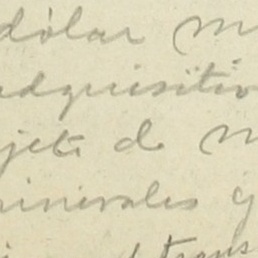 dólar m
adquisitivo
jeto de m
minerales y
trans